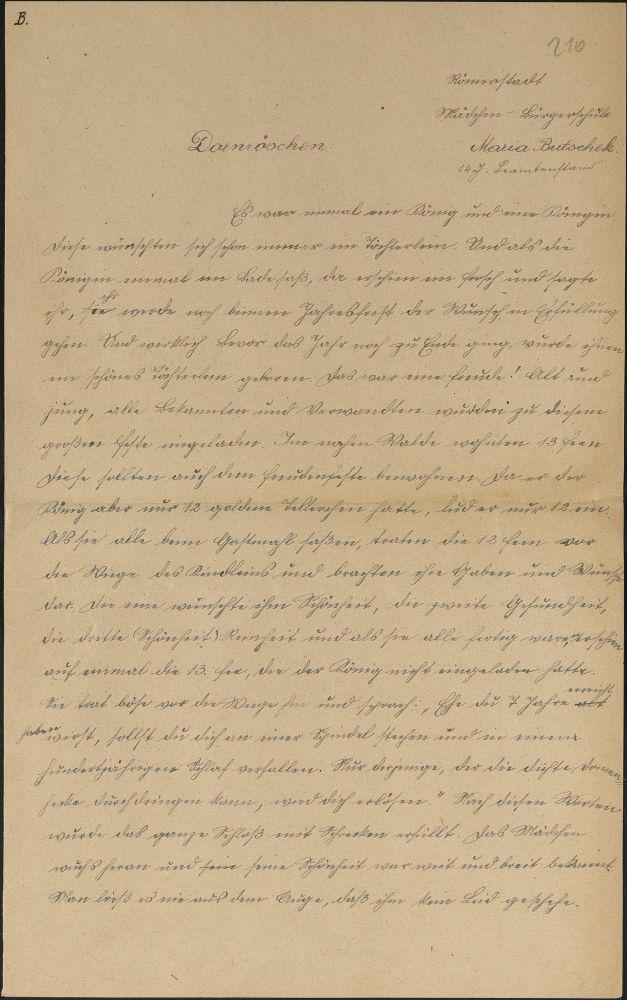 B.
210
Römerstadt
Mädchen-Bürgerschule
Dornröschen
Maria Butschek.
14 J. Beamtenstand
Es war einmal ein König und eine Königin
Diese wünschten sich schon immer ein Töchterlein. Und als die
Königin einmal im Bade saß, da erschien ein Frosch und sagte
ihr, sie ihr werde noch binnen Jahresfrist der Wunsch in Erfüllung
gehen. Und wirklich. Bevor das Jahr noch zu Ende ging, wurde ihnen
ein schönes Töchterlein geboren. Das war eine Freude! Alt und
jung, alle Bekannten und Verwandten wurden zu diesem
großen Feste eingeladen. Im nahen Walde wohnten 13 Feen
Diese sollten auch dem Freudenfeste beiwohnen. Da er der
König aber nur 12 goldene Tellerchen hatte, lud er nur 12 ein.
Als sie alle beim Gastmahl saßen, traten die 12 Feen vor
die Wiege des Kindleins und brachten ihre Gaben und Wünsche
dar. Die eine wünschte ihm Schönheit, die zweite Gesundheit,
die dritte (Schönheit) Reinheit und als sie alle fertig waren, erschien
auf einmal die 13. Fee, die der König nicht eingeladen hatte.
Sie trat böse vor die Wiege hin und sprach: „Ehe du 7 Jahre alt erreicht
haben wirst, sollst du dich an einer Spindel stechen und in einen
hundertjährigen Schlaf verfallen. Nur derjenige, der die dichte Dornen-
hecke durchdringen kann, wird dich erlösen." Nach diesen Worten
wurde das ganze Schloß mit Schrecken erfüllt. Das Mädchen
wuchs heran und sein seine Schönheit war weit und breit bekannt.
Man ließ es nie aus dem Auge, daß ihm kein Leid geschehe.